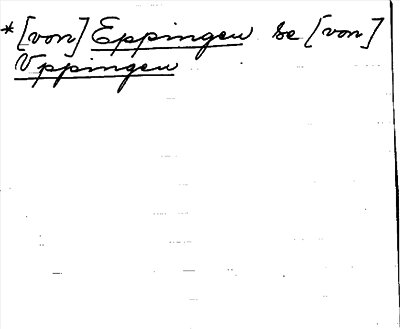 *[von] Eppingen se [von]
Vppingen